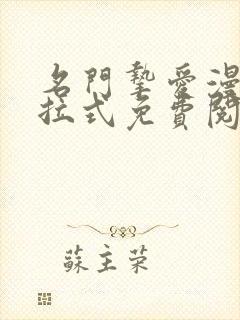 名門摯愛漫
拉式免費閱
蘇主榮